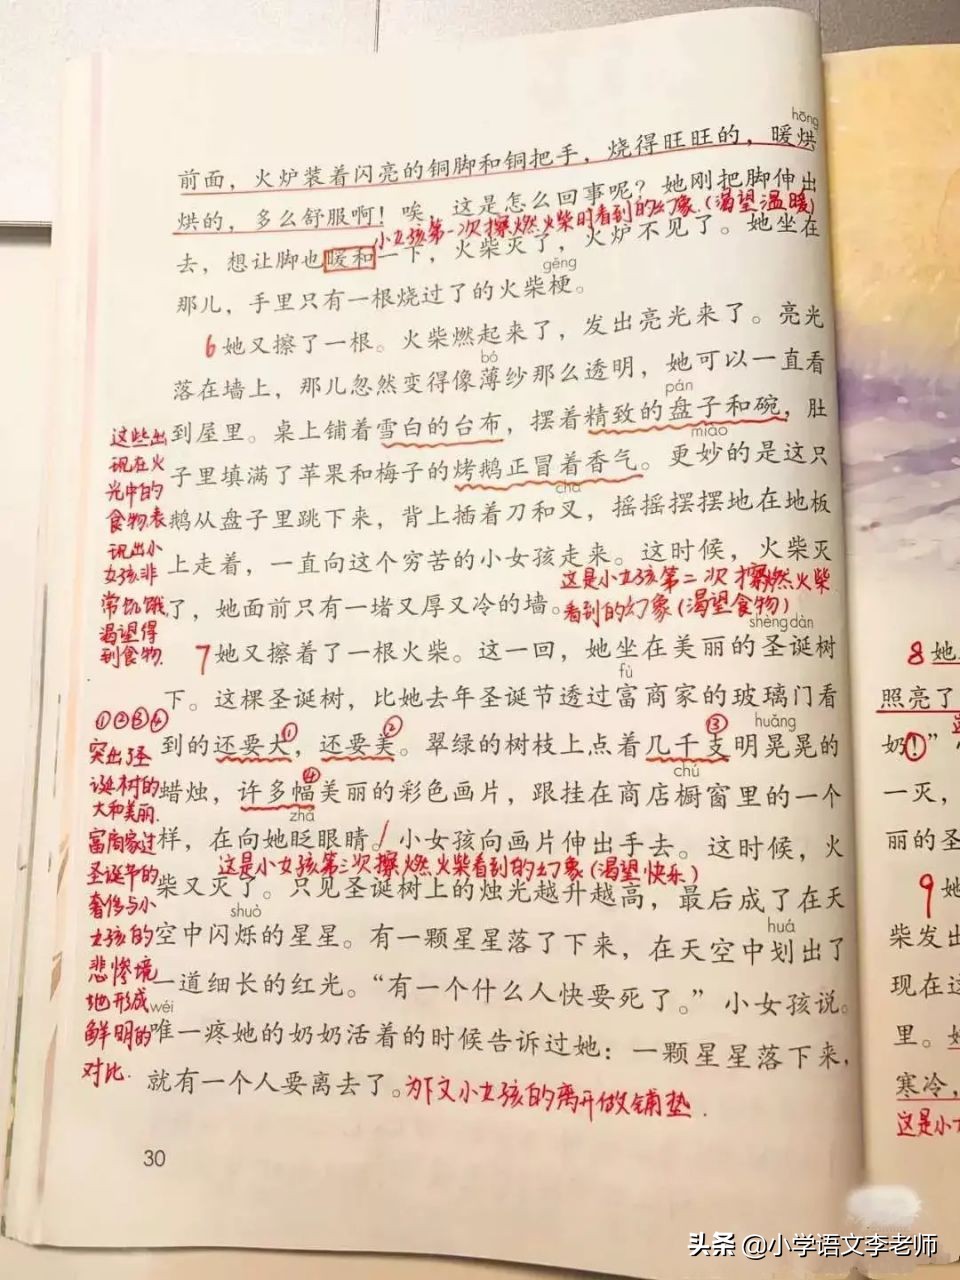 hōng
前面，火炉装着闪亮的铜脚和铜把手，烧得旺旺的，暖烘
烘的，多么舒服啊！唉，这是怎么回事呢？她刚把脚伸出
小女孩第一次擦燃火柴时看到的幻象.(渴望温暖)
去，想让脚也暖和一下，火柴灭了，火炉不见了。她坐在
gěng
那儿，手里只有一根烧过了的火柴梗。
6她又擦了一根。火柴燃起来了，发出亮光来了。亮光
bó
落在墙上，那儿忽然变得像薄纱那么透明，她可以一直看
pán
到屋里。桌上铺着雪白的台布，摆着精致的盘子和碗，肚
miào
子里填满了苹果和梅子的烤鹅正冒着香气。更妙的是这只
chā
鹅从盘子里跳下来，背上插着刀和叉，摇摇摆摆地在地板
上走着，一直向这个穷苦的小女孩走来。这时候，火柴灭
这是小女孩第二次擦燃火柴
了，她面前只有一堵又厚又冷的墙。
看到的幻象(渴望食物)
shèng dàn
7她又擦着了一根火柴。这一回，她坐在美丽的圣诞树
fù
下。这棵圣诞树，比她去年圣诞节透过富商家的玻璃门看
① ② ③ huǎng
到的还要大，还要美。翠绿的树枝上点着几千支明晃晃的
④ chú
蜡烛，许多幅美丽的彩色画片，跟挂在商店橱窗里的一个
zhǎ
样，在向她眨眼睛。小女孩向画片伸出手去。这时候，火
这是小女孩第三次擦燃火柴看到的幻象(渴望快乐)
柴又灭了。只见圣诞树上的烛光越升越高，最后成了在天
shuò
空中闪烁的星星。有一颗星星落了下来，在天空中划出了
huá
一道细长的红光。“有一个什么人快要死了。”小女孩说。
wéi
唯一疼她的奶奶活着的时候告诉过她：一颗星星落下来，
就有一个人要离去了。为下文小女孩的离开做铺垫.
这些出
现在火
光中的
食物表
现出小
女孩非
常饥饿
渴望得
到食物.
①②③④
突出圣
诞树的
大和美丽.
富商家过
圣诞节的
奢侈与小
女孩的
悲惨境
地形成
鲜明的
对比.
30
8她
照亮了
奶！”
一灭，
丽的圣
9她
柴发出
现在这
里。
寒冷，
这是小
头条 @小学语文李老师